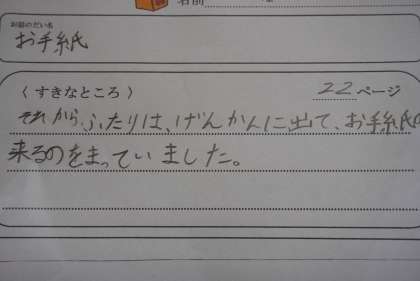 名前
お話のだい名
お手紙
〈すきなところ〉 22ページ
それから、ふたりは、げんかんに出て、お手紙の
来るのをまっていました。